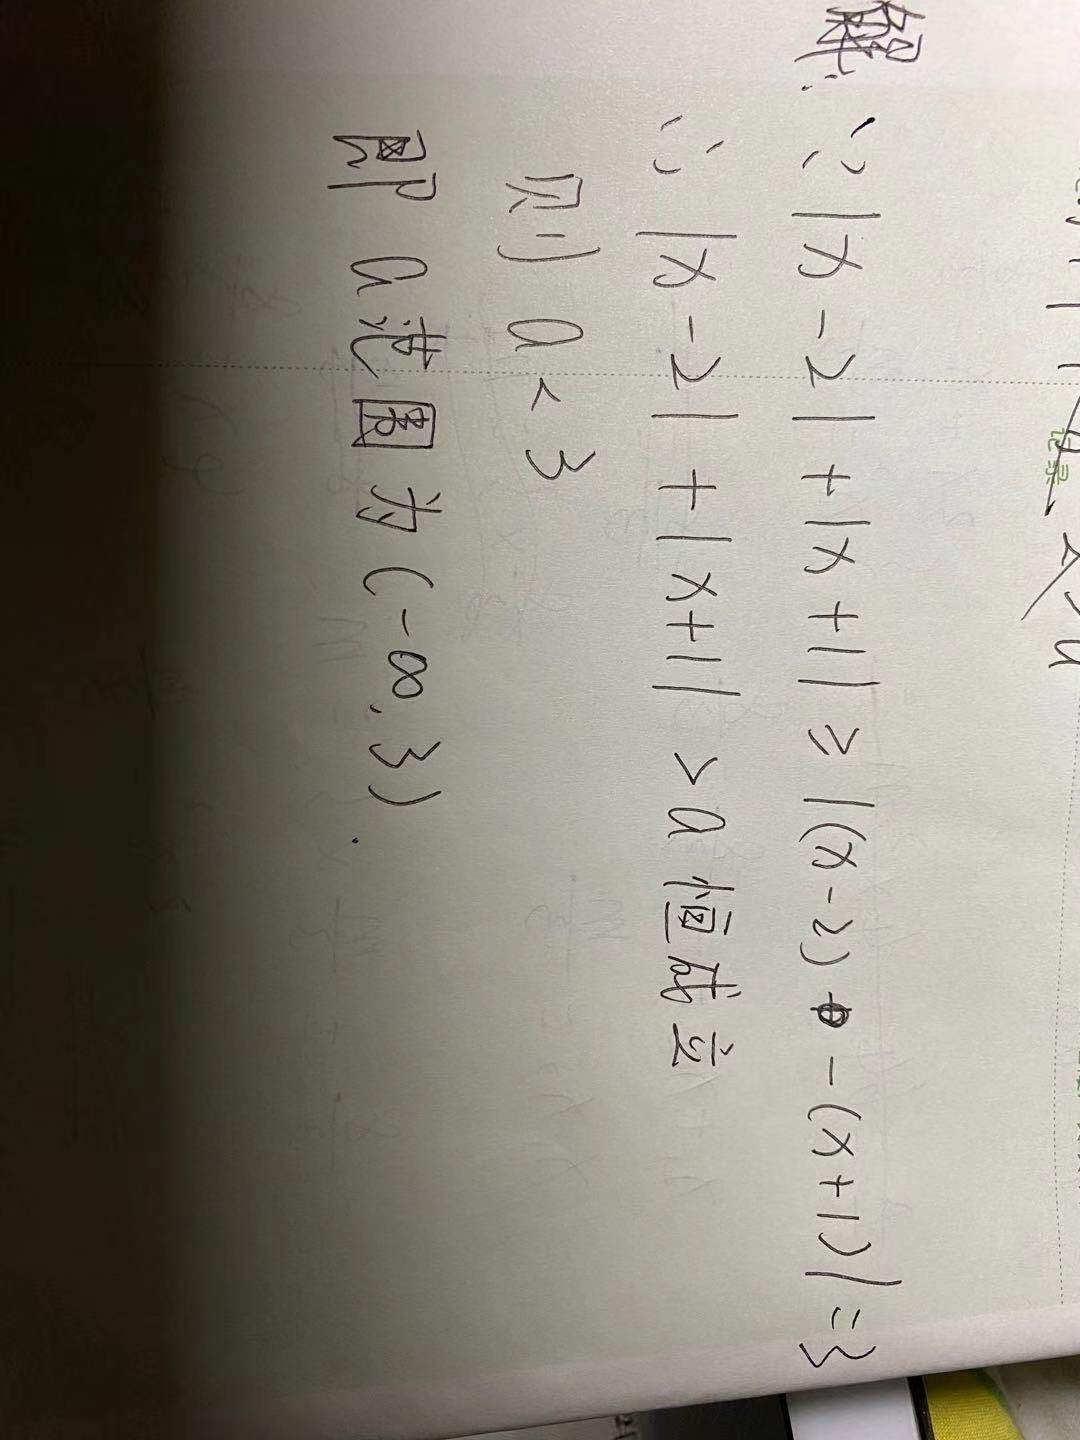 解:
∵|x-2|+|x+1|≥|(x-2)-(x+1)|=3
∴|x-2|+|x+1|>a恒成立
则 a<3
即 a范围为(-∞,3).
记录